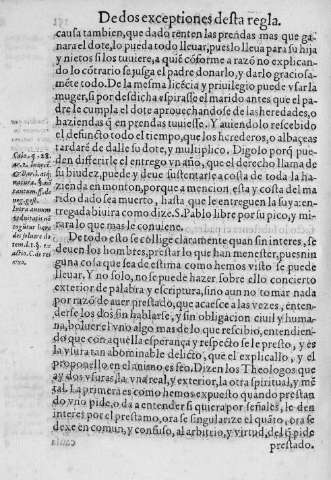 De dos exceptiones desta regla.
causa tambien, que dado renten las prendas mas que ga
nara el dote, lo pueda todo lleuar, pues lo lleua para su hija
y nietos si los tuuiere, a quië cõforme a razõ no explican
do lo cõtrario se jusga el padre donarlo, y darlo graciosa-
mẽte todo. De la mesma licẽcia y priuilegio puede vsar la
muger, si por desdicha espirasse el marido antes que el pa
dre le cumpla el dote aprouechandose de las heredades, o
haziendas q̃ en prendas tuuiesse. Y auiendolo rescebido
el defuncto todo el tiempo, que los herederos, o albaceas
tardarẽ de dalle su dote, y multiplico. Digolo porq̃ pue-
den differirle el entrego vn año, que el derecho llama de
su biudez, puede y deue sustentarse a costa de toda la ha
zienda en monton, porque a mencion esta y costa del ma
rido dado sea muerto, hasta que le entreguen la suya: en-
tregada biuira como dize. S. Pablo libre por su pico, y mi-
rara lo que mas le conuiene.
De todo esto se collige claramente quan sin interes, se
deuen los hombres, prestar lo que han menester, pues nin
guna cosa que sea de estima como hemos visto se puede
lleuar, Y no solo, no se puede hazer sobre ello concierto
exterior de palabra y escriptura, sino aun no tomar nada
por razõ de auer prestado, que acaesce a las vezes, enten-
derse los dos sin hablarse, y sin obligacion ciuil y huma-
na, boluer el vno algo mas de lo que rescibio, entendien-
do que con aquella esperança y respecto se le presto, y es
la vsura tan abominable delicto, que el explicallo, y el
proponello en el animo es feo. Dizen los Theologos que
ay dos vsuras, la vna real, y exterior, la otra spiritual, y mẽ
tal. La primera es como hemos expuesto quando prestan
do vno pide, o da a entender si quiera por señales, le den
interes por el prestamo, ora se singularize el quãto, ora se
dexe en comun, y confuso, al arbitrio, y virtud, del q̃ pide
prestado.